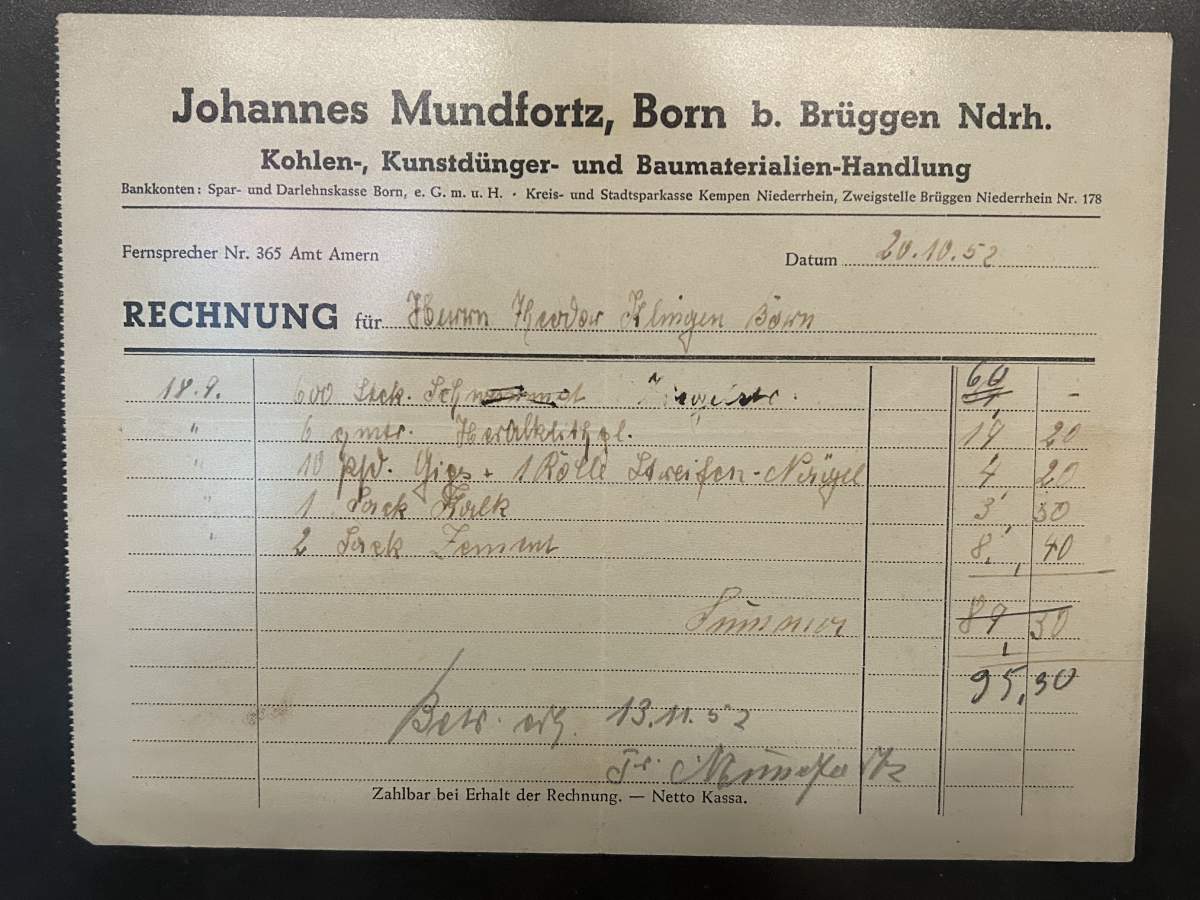 Johannes Mundfortz, Born b. Brüggen Ndrh.
Kohlen-, Kunstdünger- und Baumaterialien-Handlung
Bankkonten: Spar- und Darlehnskasse Born, e. G. m. u. H. · Kreis- und Stadtsparkasse Kempen Niederrhein, Zweigstelle Brüggen Niederrhein Nr. 178
Fernsprecher Nr. 365 Amt Amern
Datum 20.10.52
RECHNUNG für Herrn Theodor Klingen Born
18.9. 600 Stck. 60 -
" 6 qmtr. Heraklithpl. 19, 20
" 10 Pfd. Gips + 1 Rolle Streifen-Nägel 4, 20
" 1 Sack Kalk 3, 50
" 2 Sack Zement 8, 40
Summa 89, 30
95,30
Betr. erh. 13.11.52
Fr. Mundfortz
Zahlbar bei Erhalt der Rechnung. — Netto Kassa.